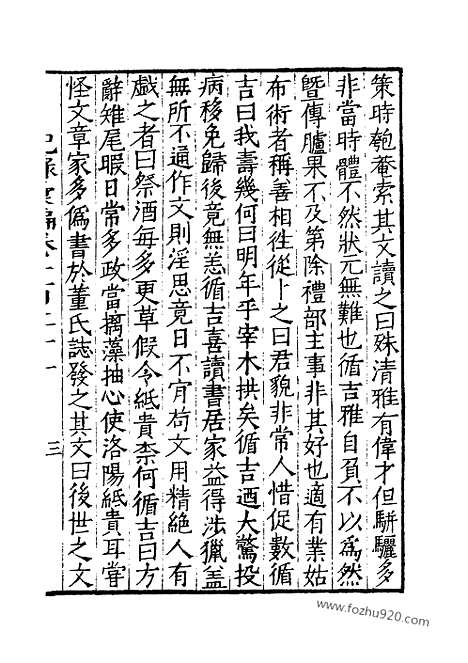 策時匏菴索其文讀之曰殊清雅有偉才但駢驪多
非當時體不然狀元無難也循吉雅自負不以為然
暨傳臚果不及第除禮部主事非其好也適有業姑
布術者稱善相徃從卜之曰君貌非常人惜促數循
吉曰我壽幾何曰明年乎宰木拱矣循吉迺大驚投
病移免歸後竟無恙循吉喜讀書居家益得涉獵盖
無所不通作文則淫思竟日不肎苟文用精絶人有
戱之者曰祭酒每多更草假令紙貴柰何循吉曰方
辭雉尾暇日常多政當摛藻抽心使洛陽紙貴耳甞
怪文章家多偽書於董氏誌發之其文曰後世之文
紀錄彙編卷一百二十一
三
www.fozhu920.com